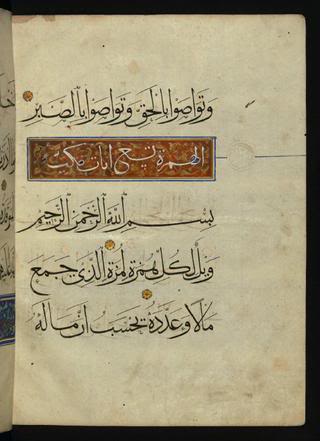 وتواصوا بالحق وتواصوا بالصبر
الهمزة تسع ايات مكية
بسم الله الرحمن الرحيم
ويل لكل همزة لمزة الذي جمع
مالا وعدده يحسب ان ماله